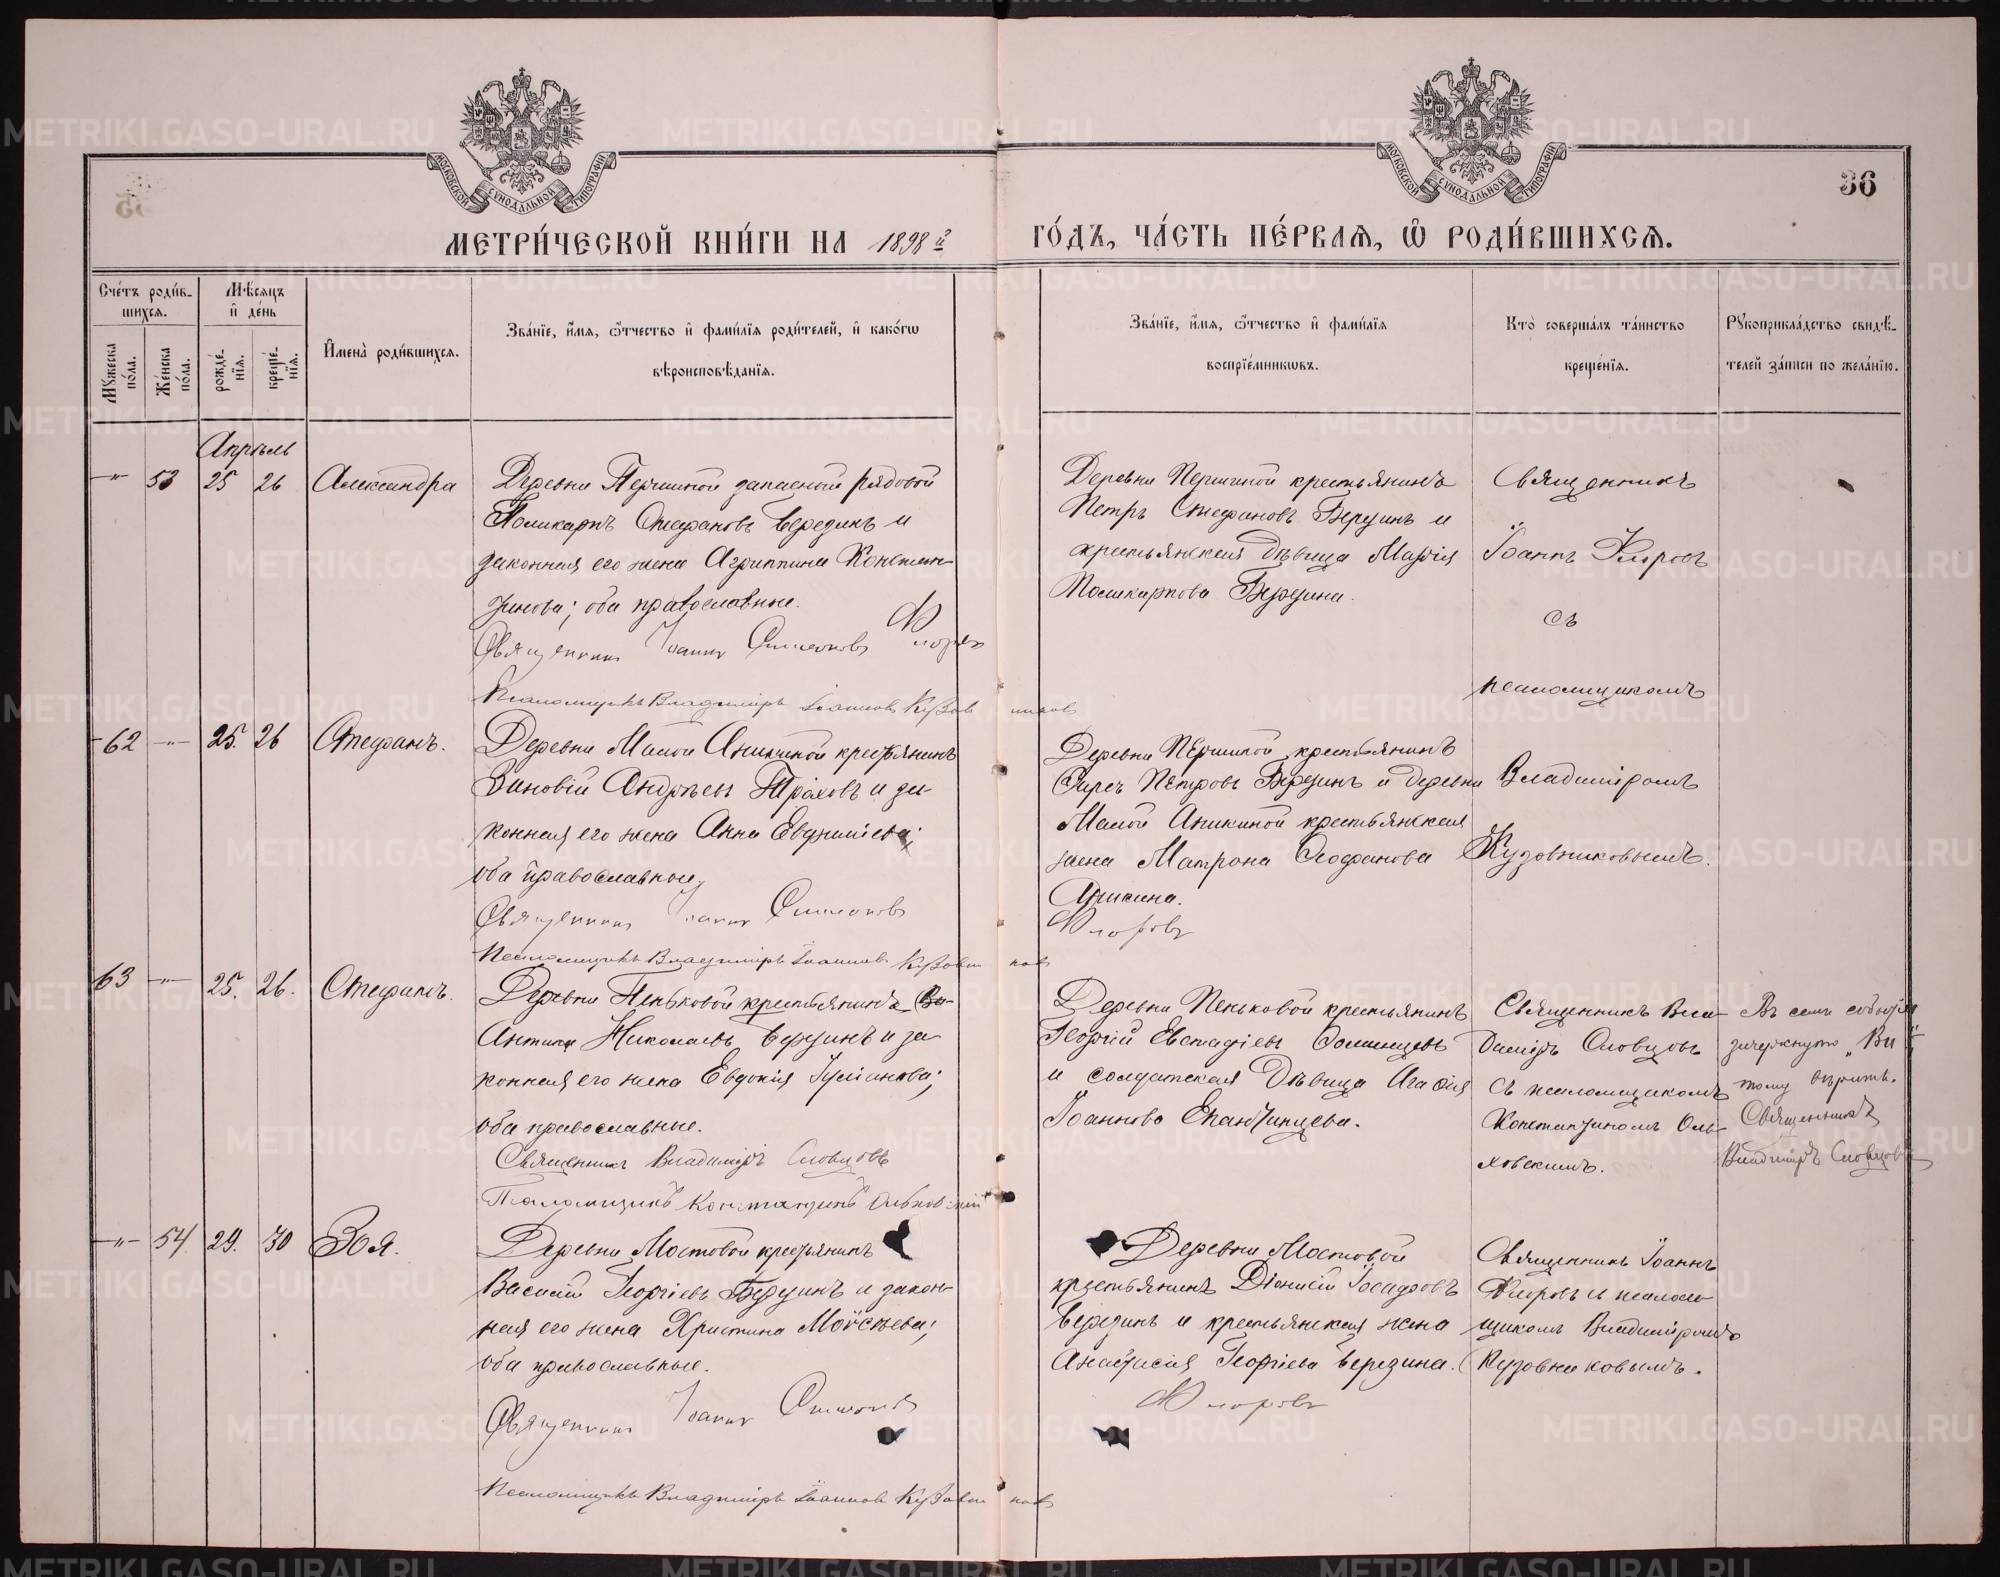 МОСКОВСКОЙ СѴНОДАЛЬНОЙ ТИПОГРАФІИ
МОСКОВСКОЙ СѴНОДАЛЬНОЙ ТИПОГРАФІИ
36
МЕТРИ́ЧЕСКОЙ КНИ́ГИ НА 1898 й ГО́ДЪ, ЧА́СТЬ ПЕ́РВАѦ, Ѡ҆ РОДИ́ВШИХСѦ.
Сче́тъ роди́в-
шихсѧ.
Мꙋ́жеска по́ла.
Же́нска по́ла.
Мѣ́сѧцъ и҆ де́нь
рожде́нїѧ.
креще́нїѧ.
И҆мена̀ роди́вшихсѧ.
Зва́нїе, и҆́мѧ, ѻ҆́тчество и҆ фами́лїѧ роди́телей, и҆ како́гѡ
вѣроисповѣ́данїѧ.
Зва́нїе, и҆́мѧ, ѻ҆́тчество и҆ фами́лїѧ
воспрїе́мникѡвъ.
Кто̀ соверша́лъ та́инство
креще́нїѧ.
Рꙋкоприкла́дство свидѣ́-
телей за́писи по жела́нїю.
Апрѣль
-"- 53 25 26 Александра
Деревни Першиной запасный рядовой
Поликарпъ Стефановъ Березинъ и
законная его жена Агриппина Констан-
тинова; оба православные.
Священник Иоанн Симеонов Флоров
Псаломщикъ Владимиръ Іоаннов Кузовников
Деревни Першиной крестьянинъ
Петръ Стефановъ Березинъ и
крестьянская дѣвица Марія
Поликарпова Березина.
Священникъ
Іоаннъ Флоровъ
съ
псаломщикомъ
Владиміромъ
Кузовниковымъ.
62 -"- 25. 26 Стефанъ.
Деревни Малой Аникиной крестьянинъ
Зиновій Андреевъ Тряховъ и за-
конная его жена Анна Евфиміева;
оба православные.
Священник Иоанн Симеонов
Флоров
Псаломщикъ Владимиръ Іоаннов Кузовников
Деревни Першиной крестьянинъ
Петровъ Березинъ и деревни
Малой Аникиной крестьянская
жена Матрона Феофанова
Аникина.
63 -"- 25. 26. Стефанъ.
Деревни Пеньковой крестьянинъ Ви-
Антипа Николаевъ Березинъ и за-
конная его жена Евдокія Іуліанова;
оба православные.
Священникъ Владиміръ Словцовъ
Псаломщикъ Константинъ Ольховскій
Деревни Пеньковой крестьянинъ
Георгій Евстафіевъ
и солдатская дѣвица Агафія
Іоаннова Епанчинцева.
Священникъ Вла-
диміръ Словцовъ
съ псаломщикомъ
Константиномъ Оль-
ховскимъ.
Въ семъ событіи
зачеркнуто „Ви"
тому вѣрить.
Священникъ
Владиміръ Словцовъ
-"- 54. 29. 30 Зоя.
Деревни Мостовой крестьянинъ
Василій Георгіевъ Березинъ и закон-
ная его жена Христина Моѵсеева;
оба православные.
Священник Иоанн Симеонов
Флоров
Псаломщикъ Владимиръ Іоаннов Кузовников
Деревни Мостовой
крестьянинъ Діонисій Іосафовъ
Березинъ и крестьянская жена
Анастасія Георгіева Березина.
Священникъ Іоаннъ
Флоровъ съ псалом-
щикомъ Владиміромъ
Кузовниковымъ.
METRIKI.GASO-URAL.RU